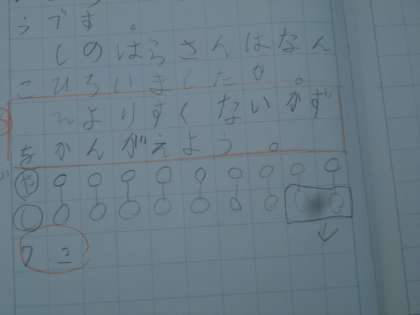 うです。
しのはらさんはなん
こひろいましたか。
～よりすくないかず
をかんがえよう。